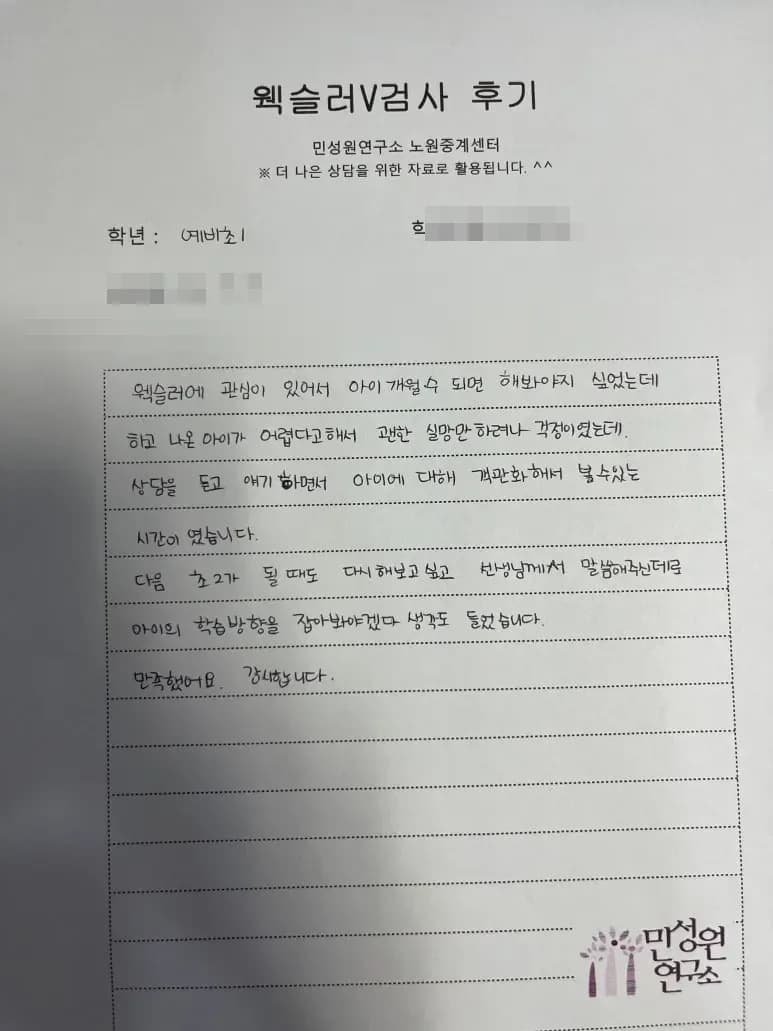 웩슬러V검사 후기
민성원연구소 노원중계센터
※ 더 나은 상담을 위한 자료로 활용됩니다. ^^
학년 : 예비초1
웩슬러에 관심이 있어서 아이 개월수 되면 해봐야지 싶었는데
하고 나온 아이가 어렵다고해서 괜한 실망만하려나 걱정이였는데.
상담을 듣고 얘기하면서 아이에 대해 객관화해서 볼수있는
시간이 였습니다.
다음 초2가 될때도 다시해보고싶고 선생님께서 말씀해주신데로
아이의 학습방향을 잡아봐야겠다 생각도 들었습니다.
만족했어요. 감사합니다.
민성원
연구소